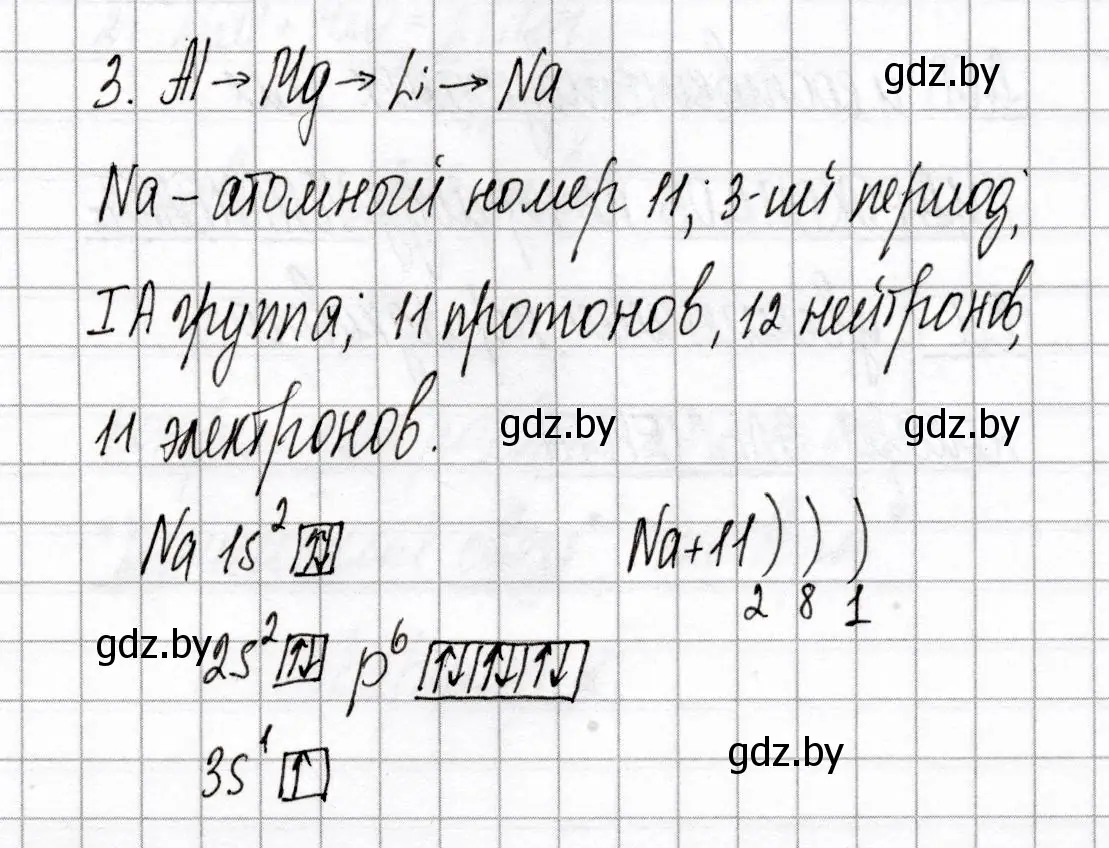 3. Al → Mg → Li → Na gdz.by
Na – атомный номер 11; 3-ий период;
IA группа; 11 протонов, 12 нейтронов,
11 электронов. gdz.by gdz.by
Na 1s² ↑↓ Na+11 ) ) )
2 8 1
gdz.by 2s² ↑↓ p⁶ ↑↓ ↑↓ ↑↓
3s¹ ↑ gdz.by